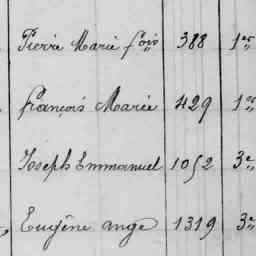 Pierre Marie fois 388 1er
françois Marie 429 1er
Joseph Emmanuel 1052 3e
Eugène ange 1319 3e